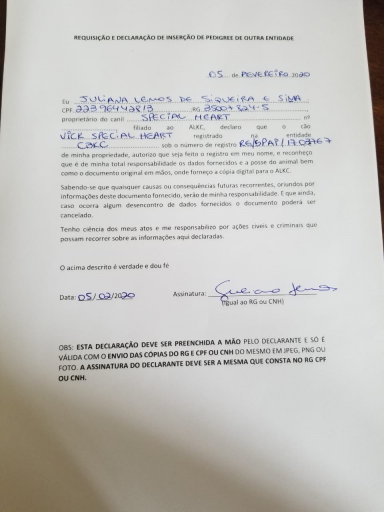 REQUISIÇÃO E DECLARAÇÃO DE INSERÇÃO DE PEDIGREE DE OUTRA ENTIDADE
05 de FEVEREIRO 2020
Eu JULIANA LEMOS DE SIQUEIRA E SILVA
CPF RG
proprietário do canil SPECIAL HEART nº
filiado ao ALKC, declaro que o cão
VICK SPECIAL HEART registrado na entidade
CBKC sob o número de registro
de minha propriedade, autorizo que seja feito o registro em meu nome, e reconheço
que é de minha total responsabilidade os dados fornecidos e a posse do animal bem
como o documento original em mãos, onde forneço a cópia digital para o ALKC.
Sabendo-se que quaisquer causas ou consequências futuras recorrentes, oriundos por
informações deste documento fornecido, serão de minha responsabilidade. E que ainda,
caso ocorra algum desencontro de dados fornecidos o documento poderá ser
cancelado.
Tenho ciência dos meus atos e me responsabilizo por ações cíveis e criminais que
possam recorrer sobre as informações aqui declaradas.
O acima descrito é verdade e dou fé
Data: 05/02/2020 Assinatura: Juliana Lemos
(Igual ao RG ou CNH)
OBS: ESTA DECLARAÇÃO DEVE SER PREENCHIDA A MÃO PELO DECLARANTE E SÓ É
VÁLIDA COM O ENVIO DAS CÓPIAS DO RG E CPF OU CNH DO MESMO EM JPEG, PNG OU
FOTO. A ASSINATURA DO DECLARANTE DEVE SER A MESMA QUE CONSTA NO RG CPF
OU CNH.